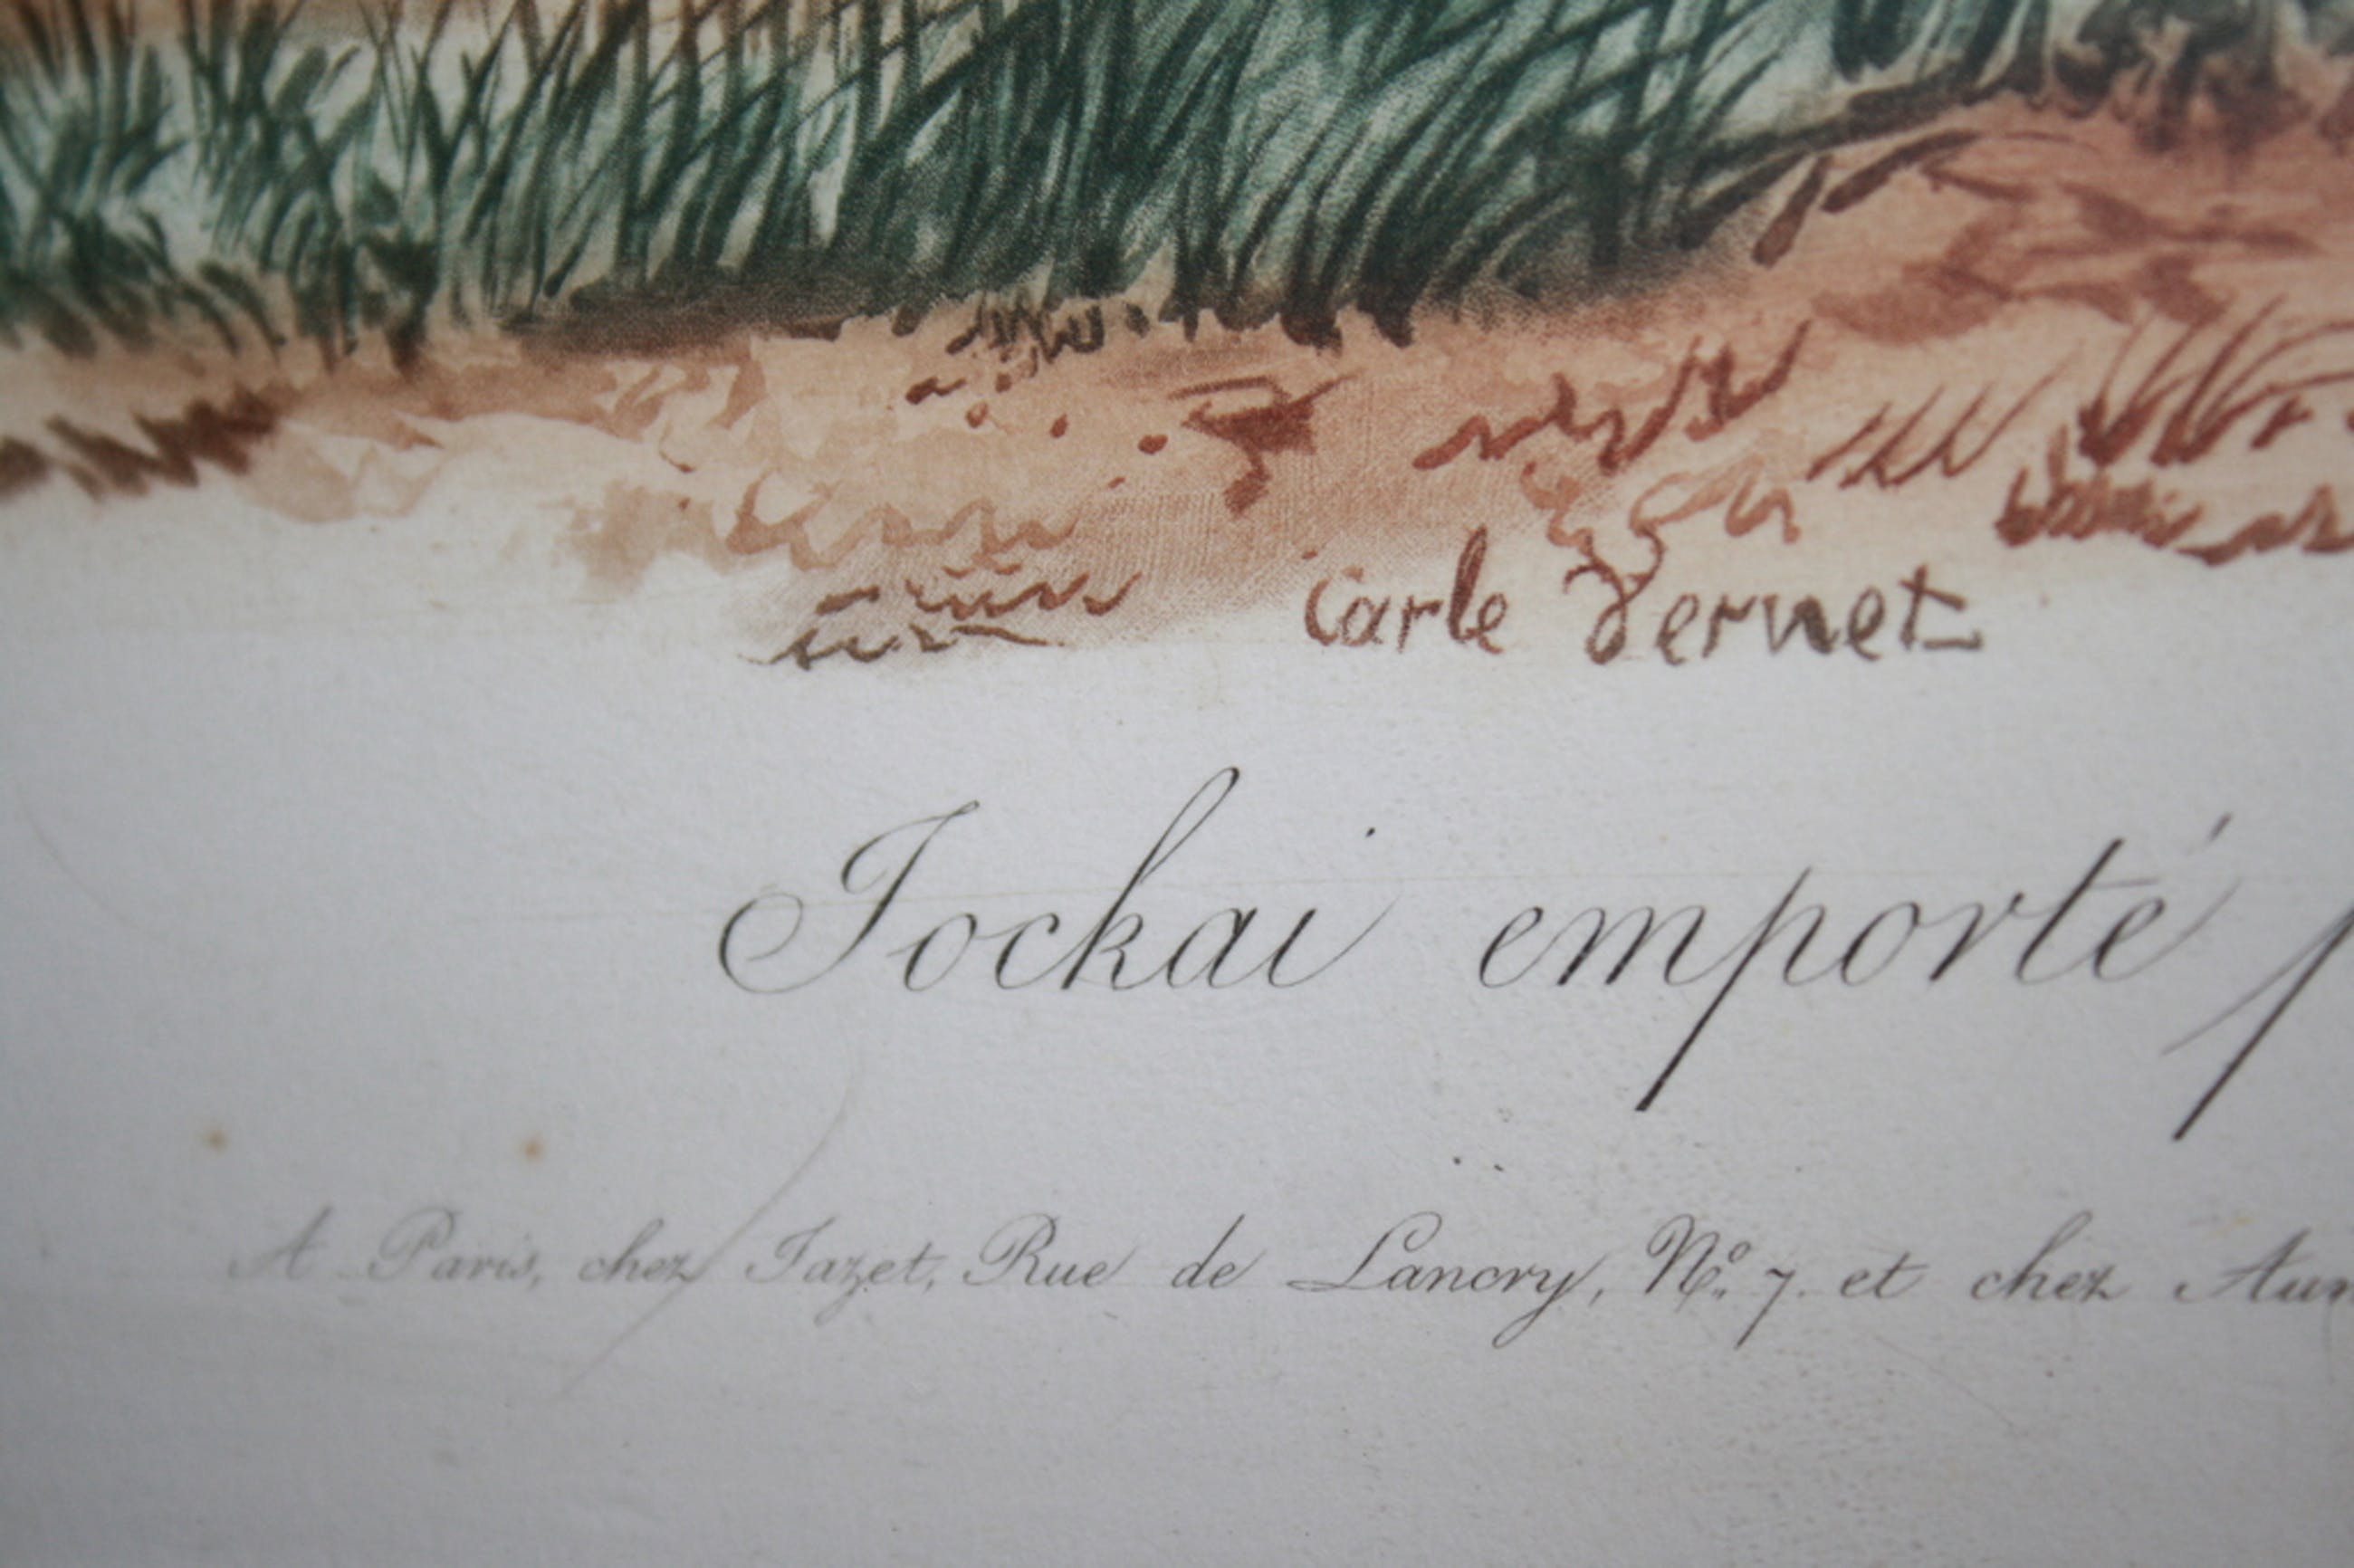 Carle Vernet
Jockai emporté p
A Paris, chez Jazet, Rue de Lancry, N.º 7. et chez Aum